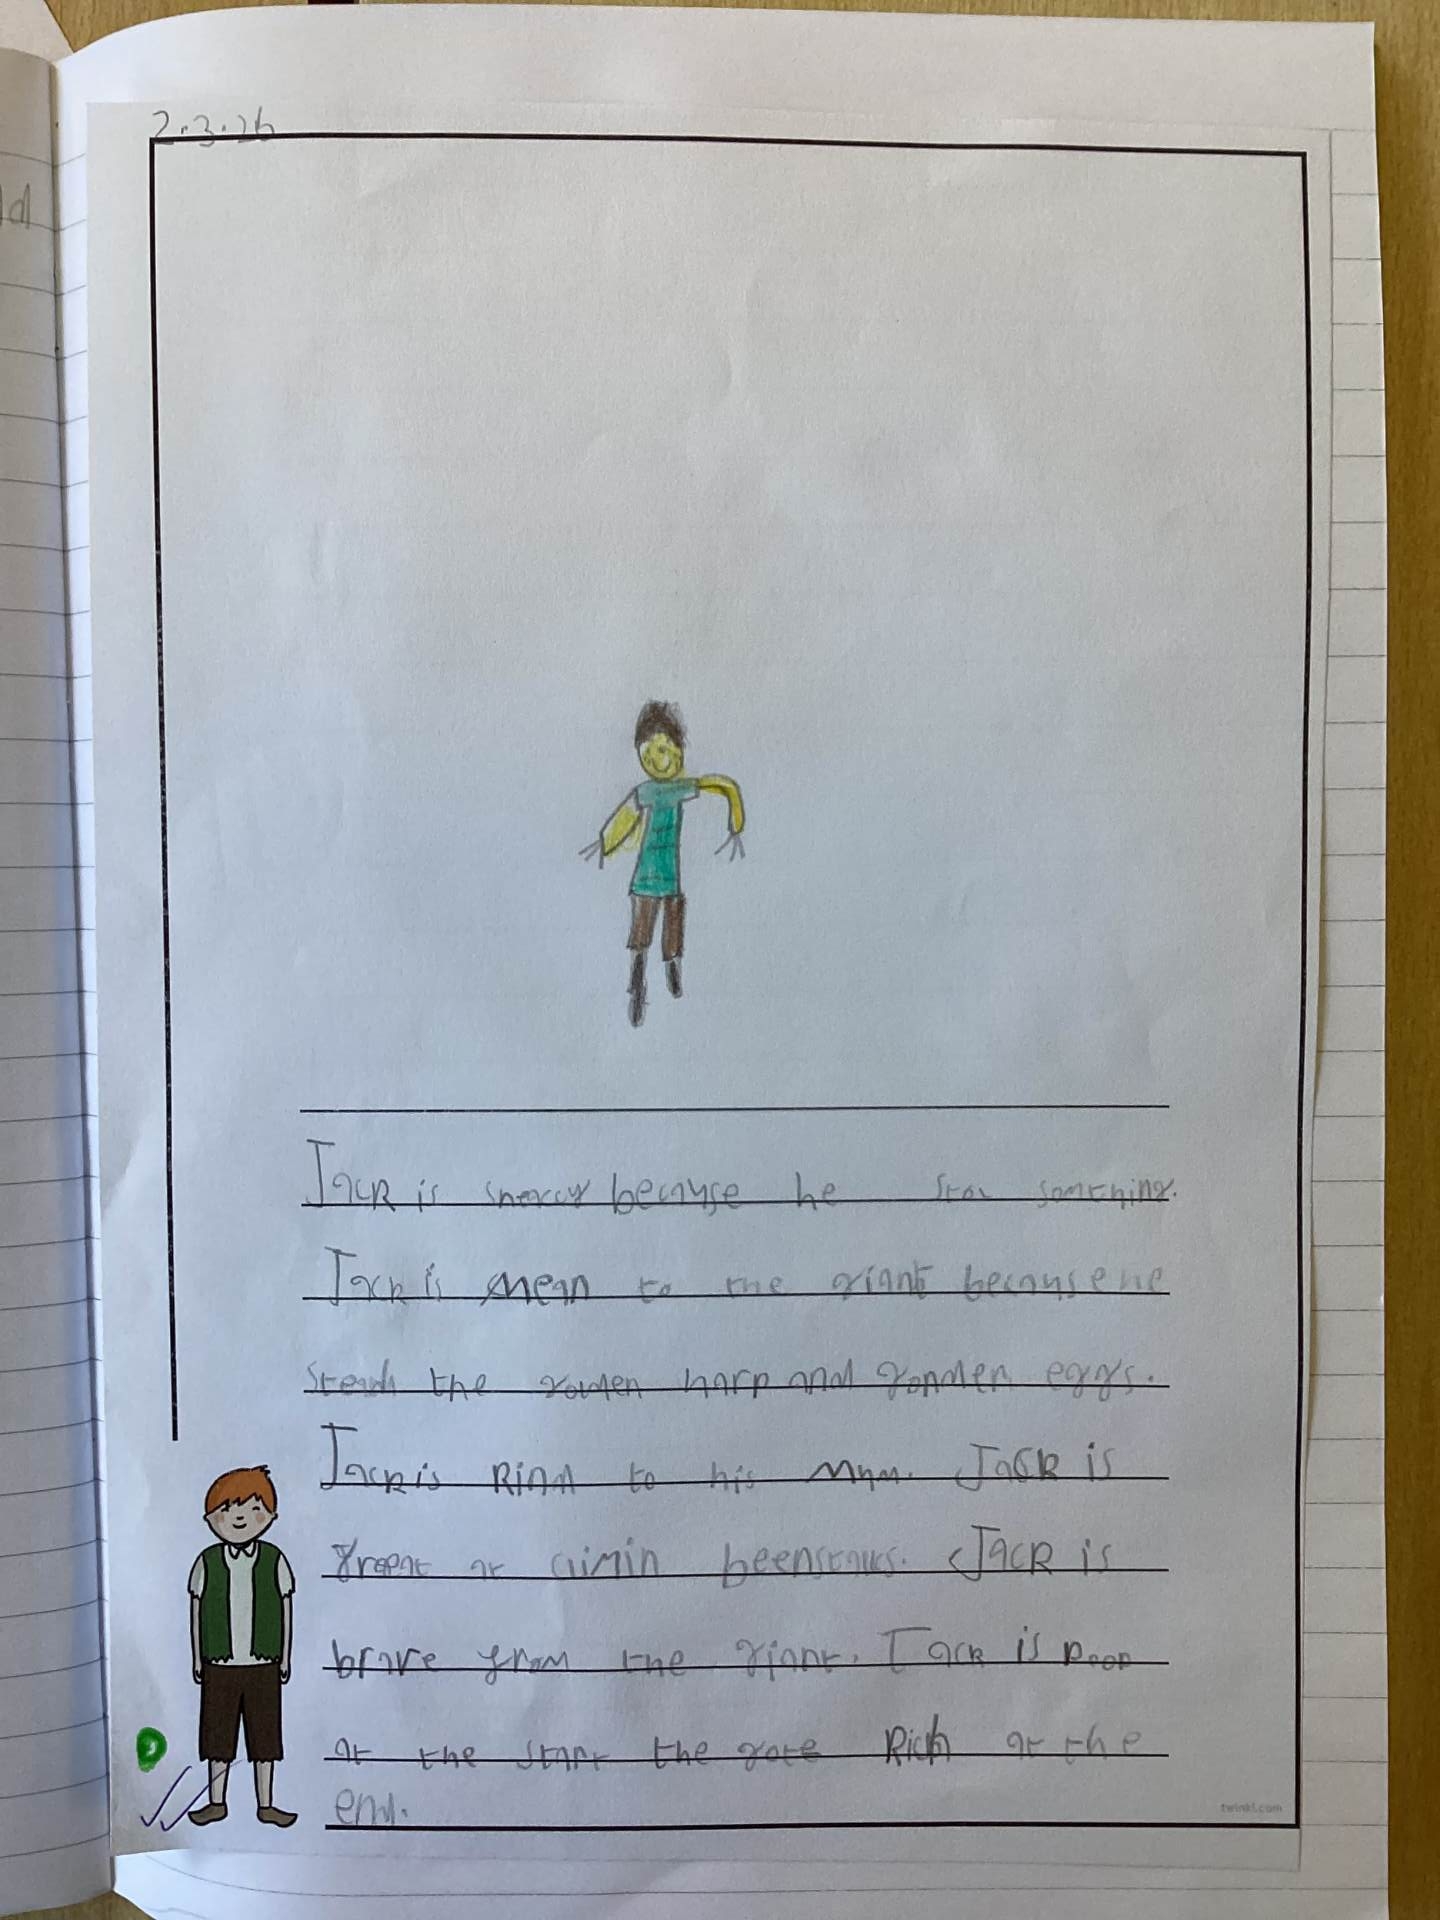 d
2.3.26
Jack is because he something.
Jack is mean to the giant because he
the harp and eggs.
Jack is kind to his mum. Jack is
at beenstalks. Jack is
brave from the giant. Jack is poor
at the start the Rich at the
end.
twinkl.com